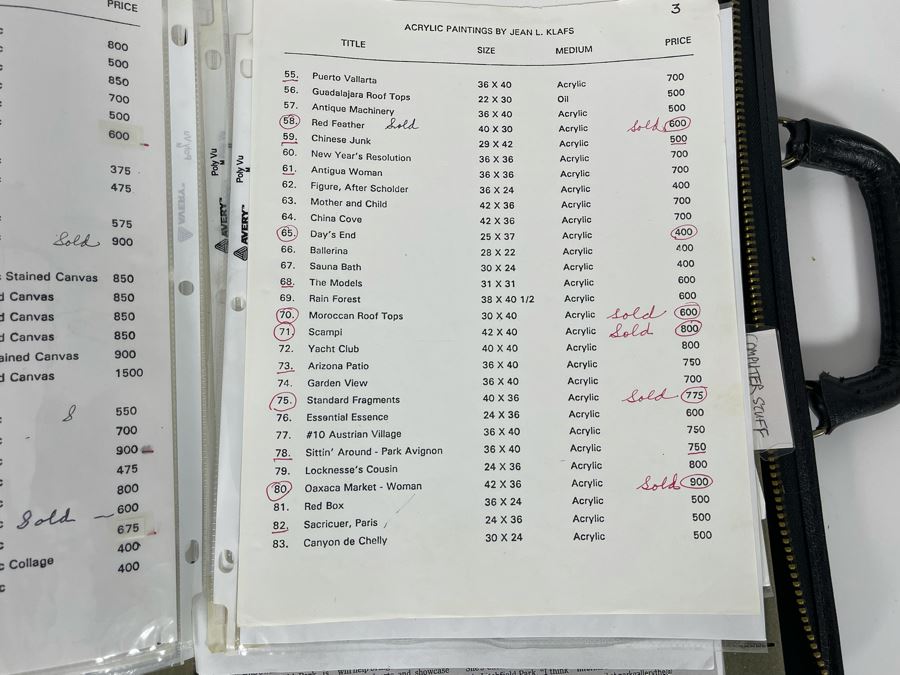 PRICE
800
500
850
700
500
600
375
475
575
Sold 900
Stained Canvas 850
Canvas 850
Canvas 850
Canvas 850
ained Canvas 900
Canvas 1500
550
700
900
475
800
Sold 600
675
400
Collage 400
Poly Vu
AVERY
Poly Vu
AVERY
Poly Vu
AVERY
3
ACRYLIC PAINTINGS BY JEAN L. KLAFS
TITLE SIZE MEDIUM PRICE
55. Puerto Vallarta 36 X 40 Acrylic 700
56. Guadalajara Roof Tops 22 X 30 Oil 500
57. Antique Machinery 36 X 40 Acrylic 500
58. Red Feather Sold 40 X 30 Acrylic Sold 600
59. Chinese Junk 29 X 42 Acrylic 500
60. New Year's Resolution 36 X 36 Acrylic 700
61. Antigua Woman 36 X 36 Acrylic 700
62. Figure, After Scholder 36 X 24 Acrylic 400
63. Mother and Child 42 X 36 Acrylic 700
64. China Cove 42 X 36 Acrylic 700
65. Day's End 25 X 37 Acrylic 400
66. Ballerina 28 X 22 Acrylic 400
67. Sauna Bath 30 X 24 Acrylic 400
68. The Models 31 X 31 Acrylic 600
69. Rain Forest 38 X 40 1/2 Acrylic 600
70. Moroccan Roof Tops 30 X 40 Acrylic Sold 600
71. Scampi 42 X 40 Acrylic Sold 800
72. Yacht Club 40 X 40 Acrylic 800
73. Arizona Patio 36 X 40 Acrylic 750
74. Garden View 36 X 40 Acrylic 700
75. Standard Fragments 40 X 36 Acrylic Sold 775
76. Essential Essence 24 X 36 Acrylic 600
77. #10 Austrian Village 36 X 40 Acrylic 750
78. Sittin' Around - Park Avignon 36 X 40 Acrylic 750
79. Locknesse's Cousin 24 X 36 Acrylic 800
80 Oaxaca Market - Woman 42 X 36 Acrylic Sold 900
81. Red Box 36 X 24 Acrylic 500
82. Sacricuer, Paris 24 X 36 Acrylic 500
83. Canyon de Chelly 30 X 24 Acrylic 500
COMPUTER STUFF
and showcase
"I think